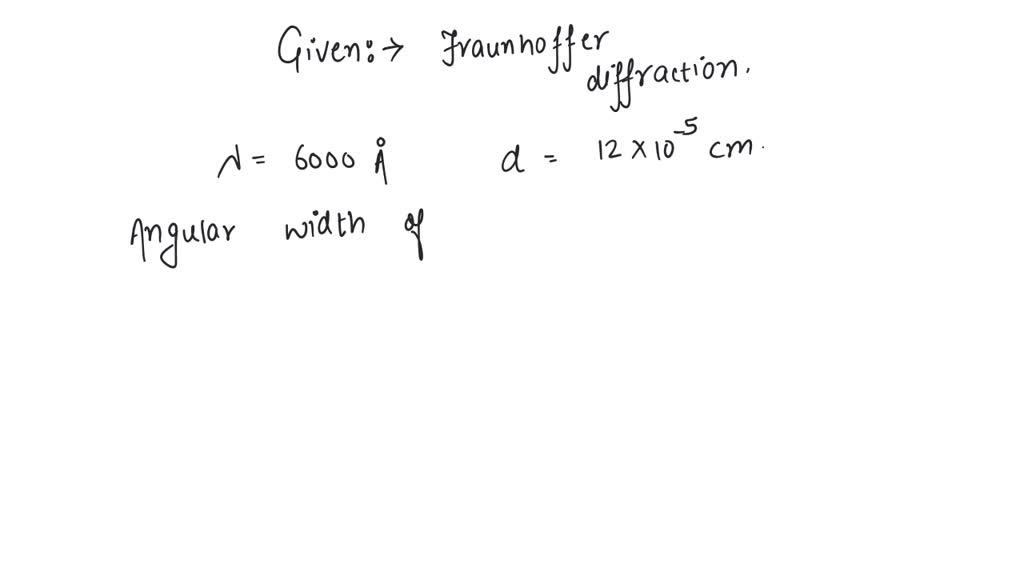 Given:→ Fraunhoffer
diffraction.
λ = 6000 Å d = 12 × 10⁻⁵ cm.
Angular width of